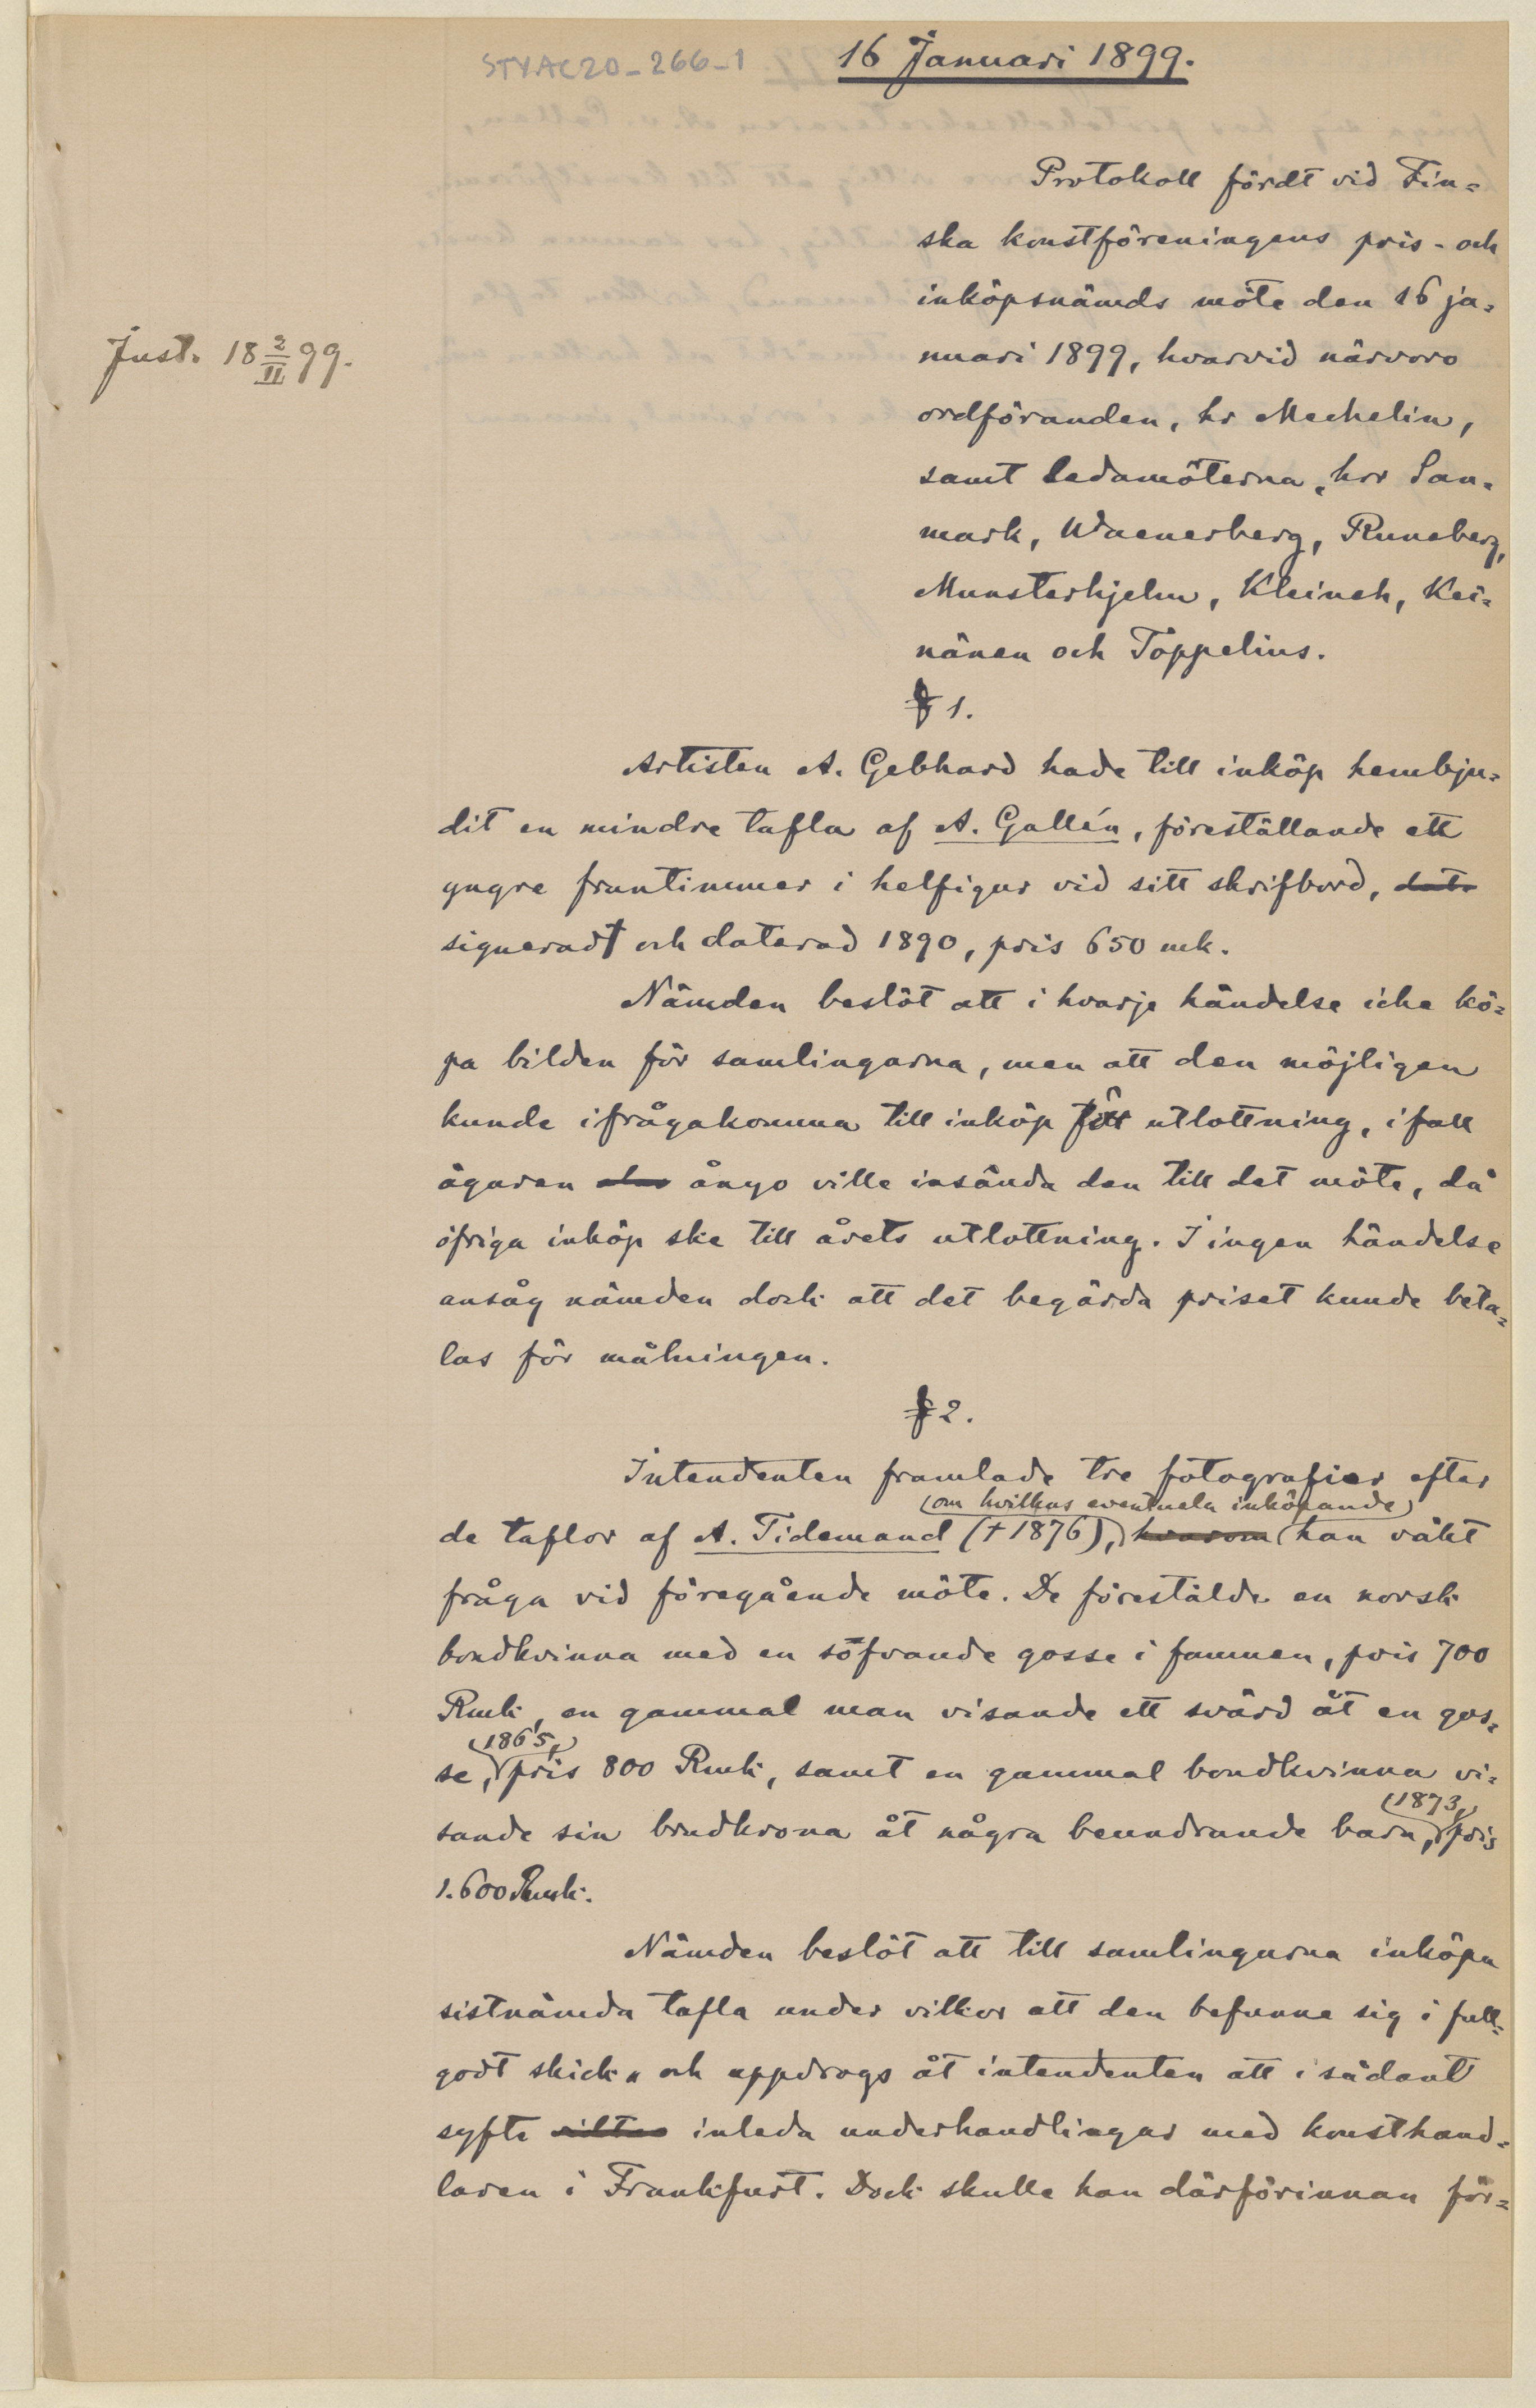 STYAC20-266-1
16 Januari 1899.
Just. 18 2/II 99.
Protokoll fördt vid Fin=
ska konstföreningens pris- och
inköpsnämds möte den 16 ja=
nuari 1899, hvarvid närvoro
ordföranden, hr Mechelin,
samt ledamöterna, hrr San=
mark, Waenerberg, Runeberg,
Munsterhjelm, Kleineh, Kei=
nänen och Toppelius.
§ 1.
Artisten A. Gebhard hade till inköp hembju=
dit en mindre tafla af A. Gallén, föreställande ett
yngre fruntimmer i helfigur vid sitt skrifbord, dat.
signerad och daterad 1890, pris 650 mk.
Nämden beslöt att i hvarje händelse icke kö=
pa bilden för samlingarna, men att den möjligen
kunde ifrågakomma till inköp för utlottning, ifall
ägaren ånyo ville insända den till det möte, då
öfriga inköp ske till årets utlottning. I ingen händelse
ansåg nämden dock att det begärda priset kunde beta=
las för målningen.
§ 2.
Intendenten framlade tre fotografier efter
(om hvilkas eventuela inköpande)
de taflor af A. Tidemand (†1876), hvarom han väkt
fråga vid föregående möte. De förestälde en norsk
bondkvinna med en söfvande gosse i famnen, pris 700
Rmk, en gammal man visande ett svärd åt en gos=
1865,
se, pris 800 Rmk, samt en gammal bondkvinna vi=
1873,
sande sin brudkrona åt några beundrande barn, pris
1.600 Rmk.
Nämden beslöt att till samlingarna inköpa
sistnämda tafla under vilkor att den befunne sig i full=
godt skick och uppdrogs åt intendenten att i sådant
syfte inleda underhandlingar med konsthand=
laren i Frankfurt. Dock skulle han därförinnan för=